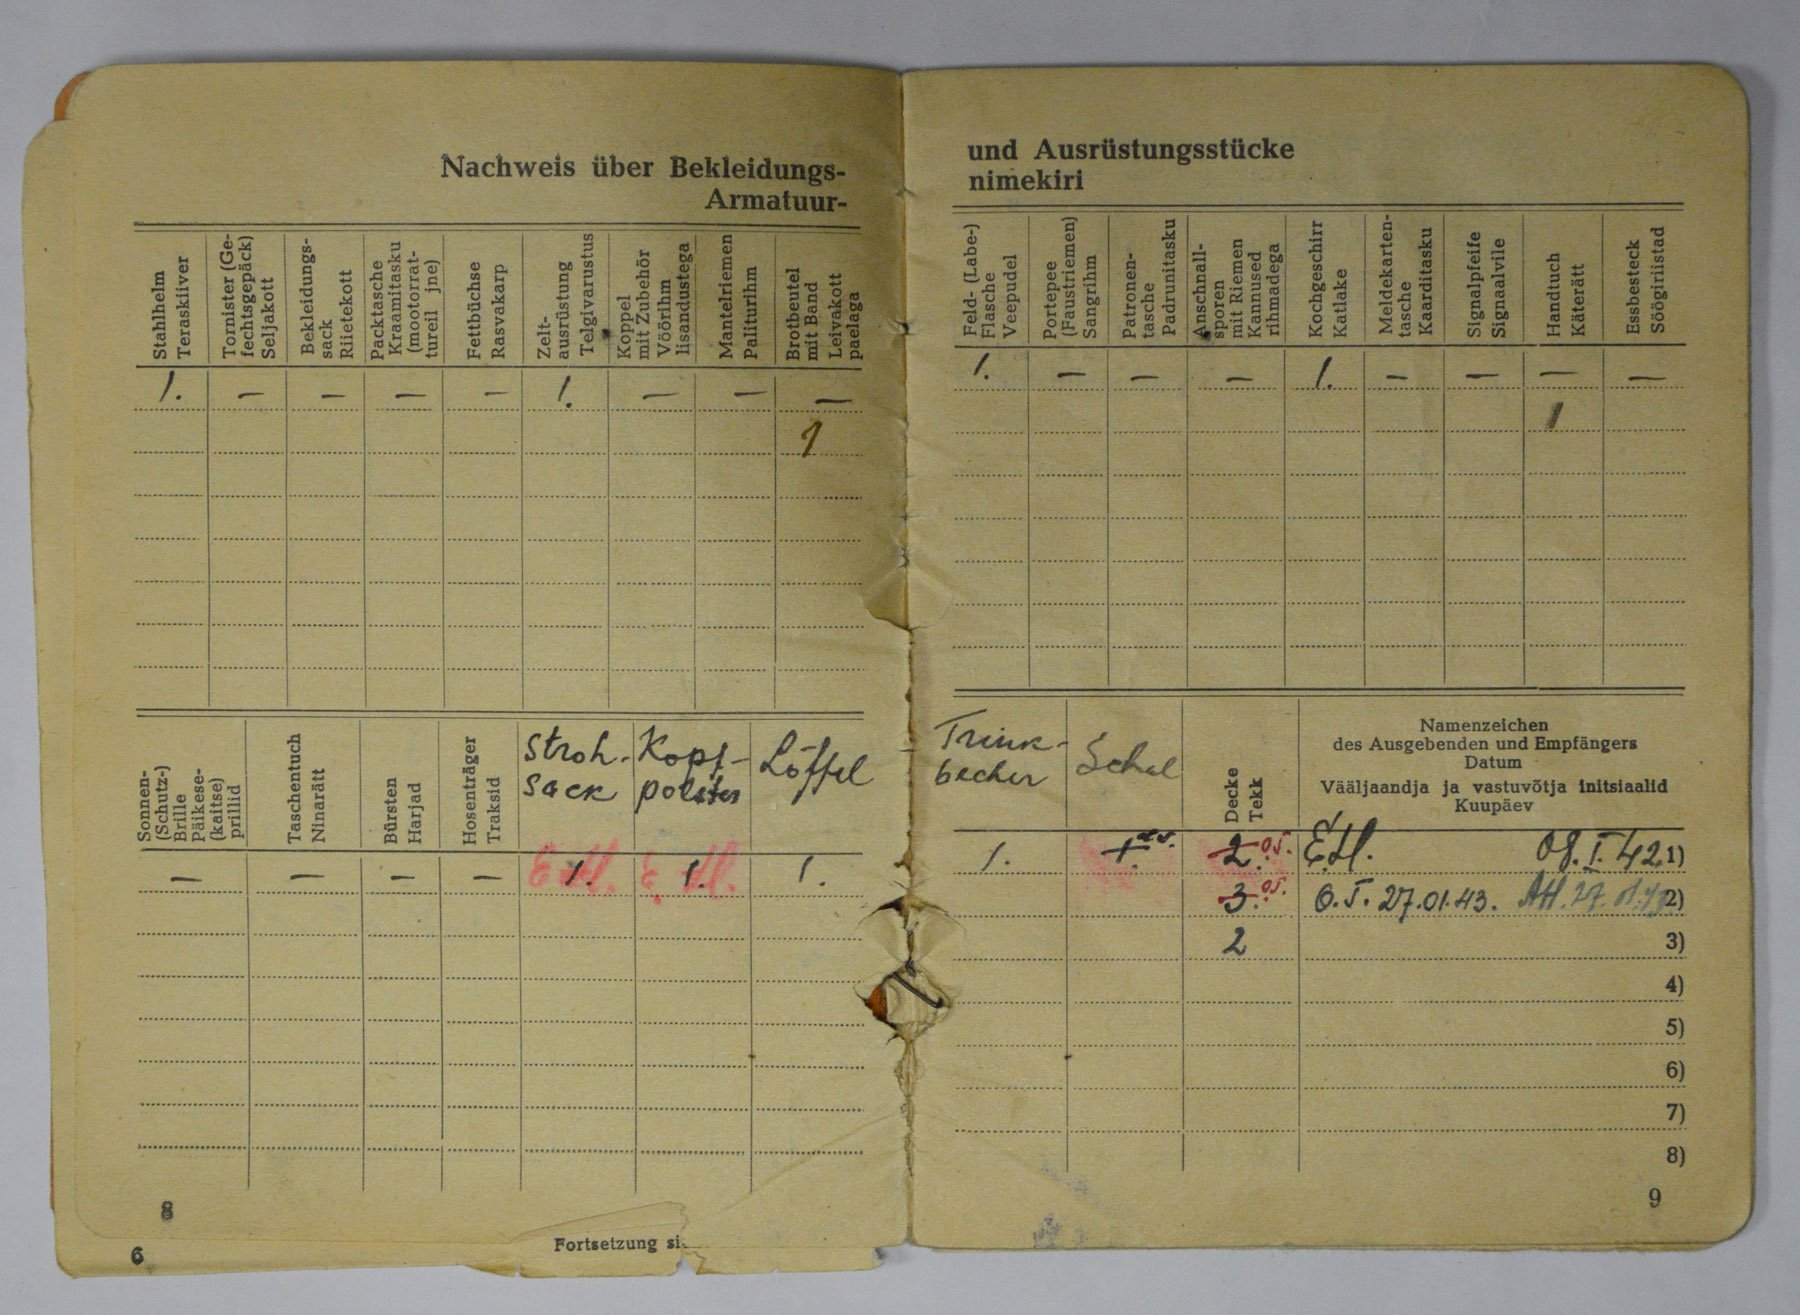 Nachweis über Bekleidungs-
Armatuur-
Stahlhelm
Teraskiiver
Tornister (Ge-
fechtsgepäck)
Seljakott
Bekleidungs-
sack
Riietekott
Packtasche
Kraamitasku
(mootorrat-
tureil jne)
Fettbüchse
Rasvakarp
Zelt-
ausrüstung
Telgivarustus
Koppel
mit Zubehör
Vöörihm
lisandustega
Mantelriemen
Paliturihm
Brotbeutel
mit Band
Leivakott
paelaga
1. — — — — 1. — — —
1
Sonnen-
(Schutz-)
Brille
Päikese-
(kaitse)
prillid
Taschentuch
Ninarätt
Bürsten
Harjad
Hosenträger
Traksid
Stroh-
sack
Kopf-
polster
Löffel
— — — — 1. 1. 1.
8
6
Fortsetzung
und Ausrüstungsstücke
nimekiri
Feld- (Labe-)
Flasche
Veepudel
Portepee
(Faustriemen)
Sangrihm
Patronen-
tasche
Padrunitasku
Anschnall-
sporen
mit Riemen
Kannused
rihmadega
Kochgeschirr
Katlake
Meldekarten-
tasche
Kaarditasku
Signalpfeife
Signaalvile
Handtuch
Käterätt
Essbesteck
Söögiriistad
1. — — — 1. — — — —
1
Trink-
becher
Schal
Decke
Tekk
Namenzeichen
des Ausgebenden und Empfängers
Datum
Vääljaandja ja vastuvõtja initsiaalid
Kuupäev
1. 1. 2. 1)
3. 27.01.43. 2)
2 3)
4)
5)
6)
7)
8)
9